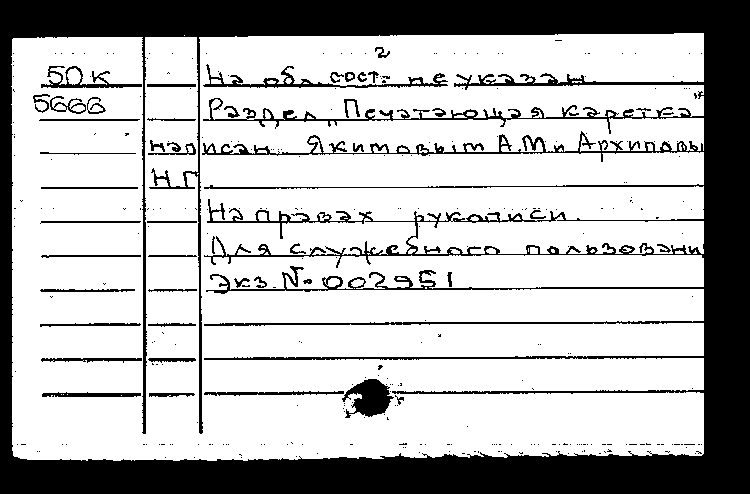 2
50к На обл. сост. не указан.
5666 Раздел „Печатающая каретка"
написан Якимовым А.М и Архиповы
Н.Г.
На правах рукописи.
Для служебного пользовани
Экз. № 002951